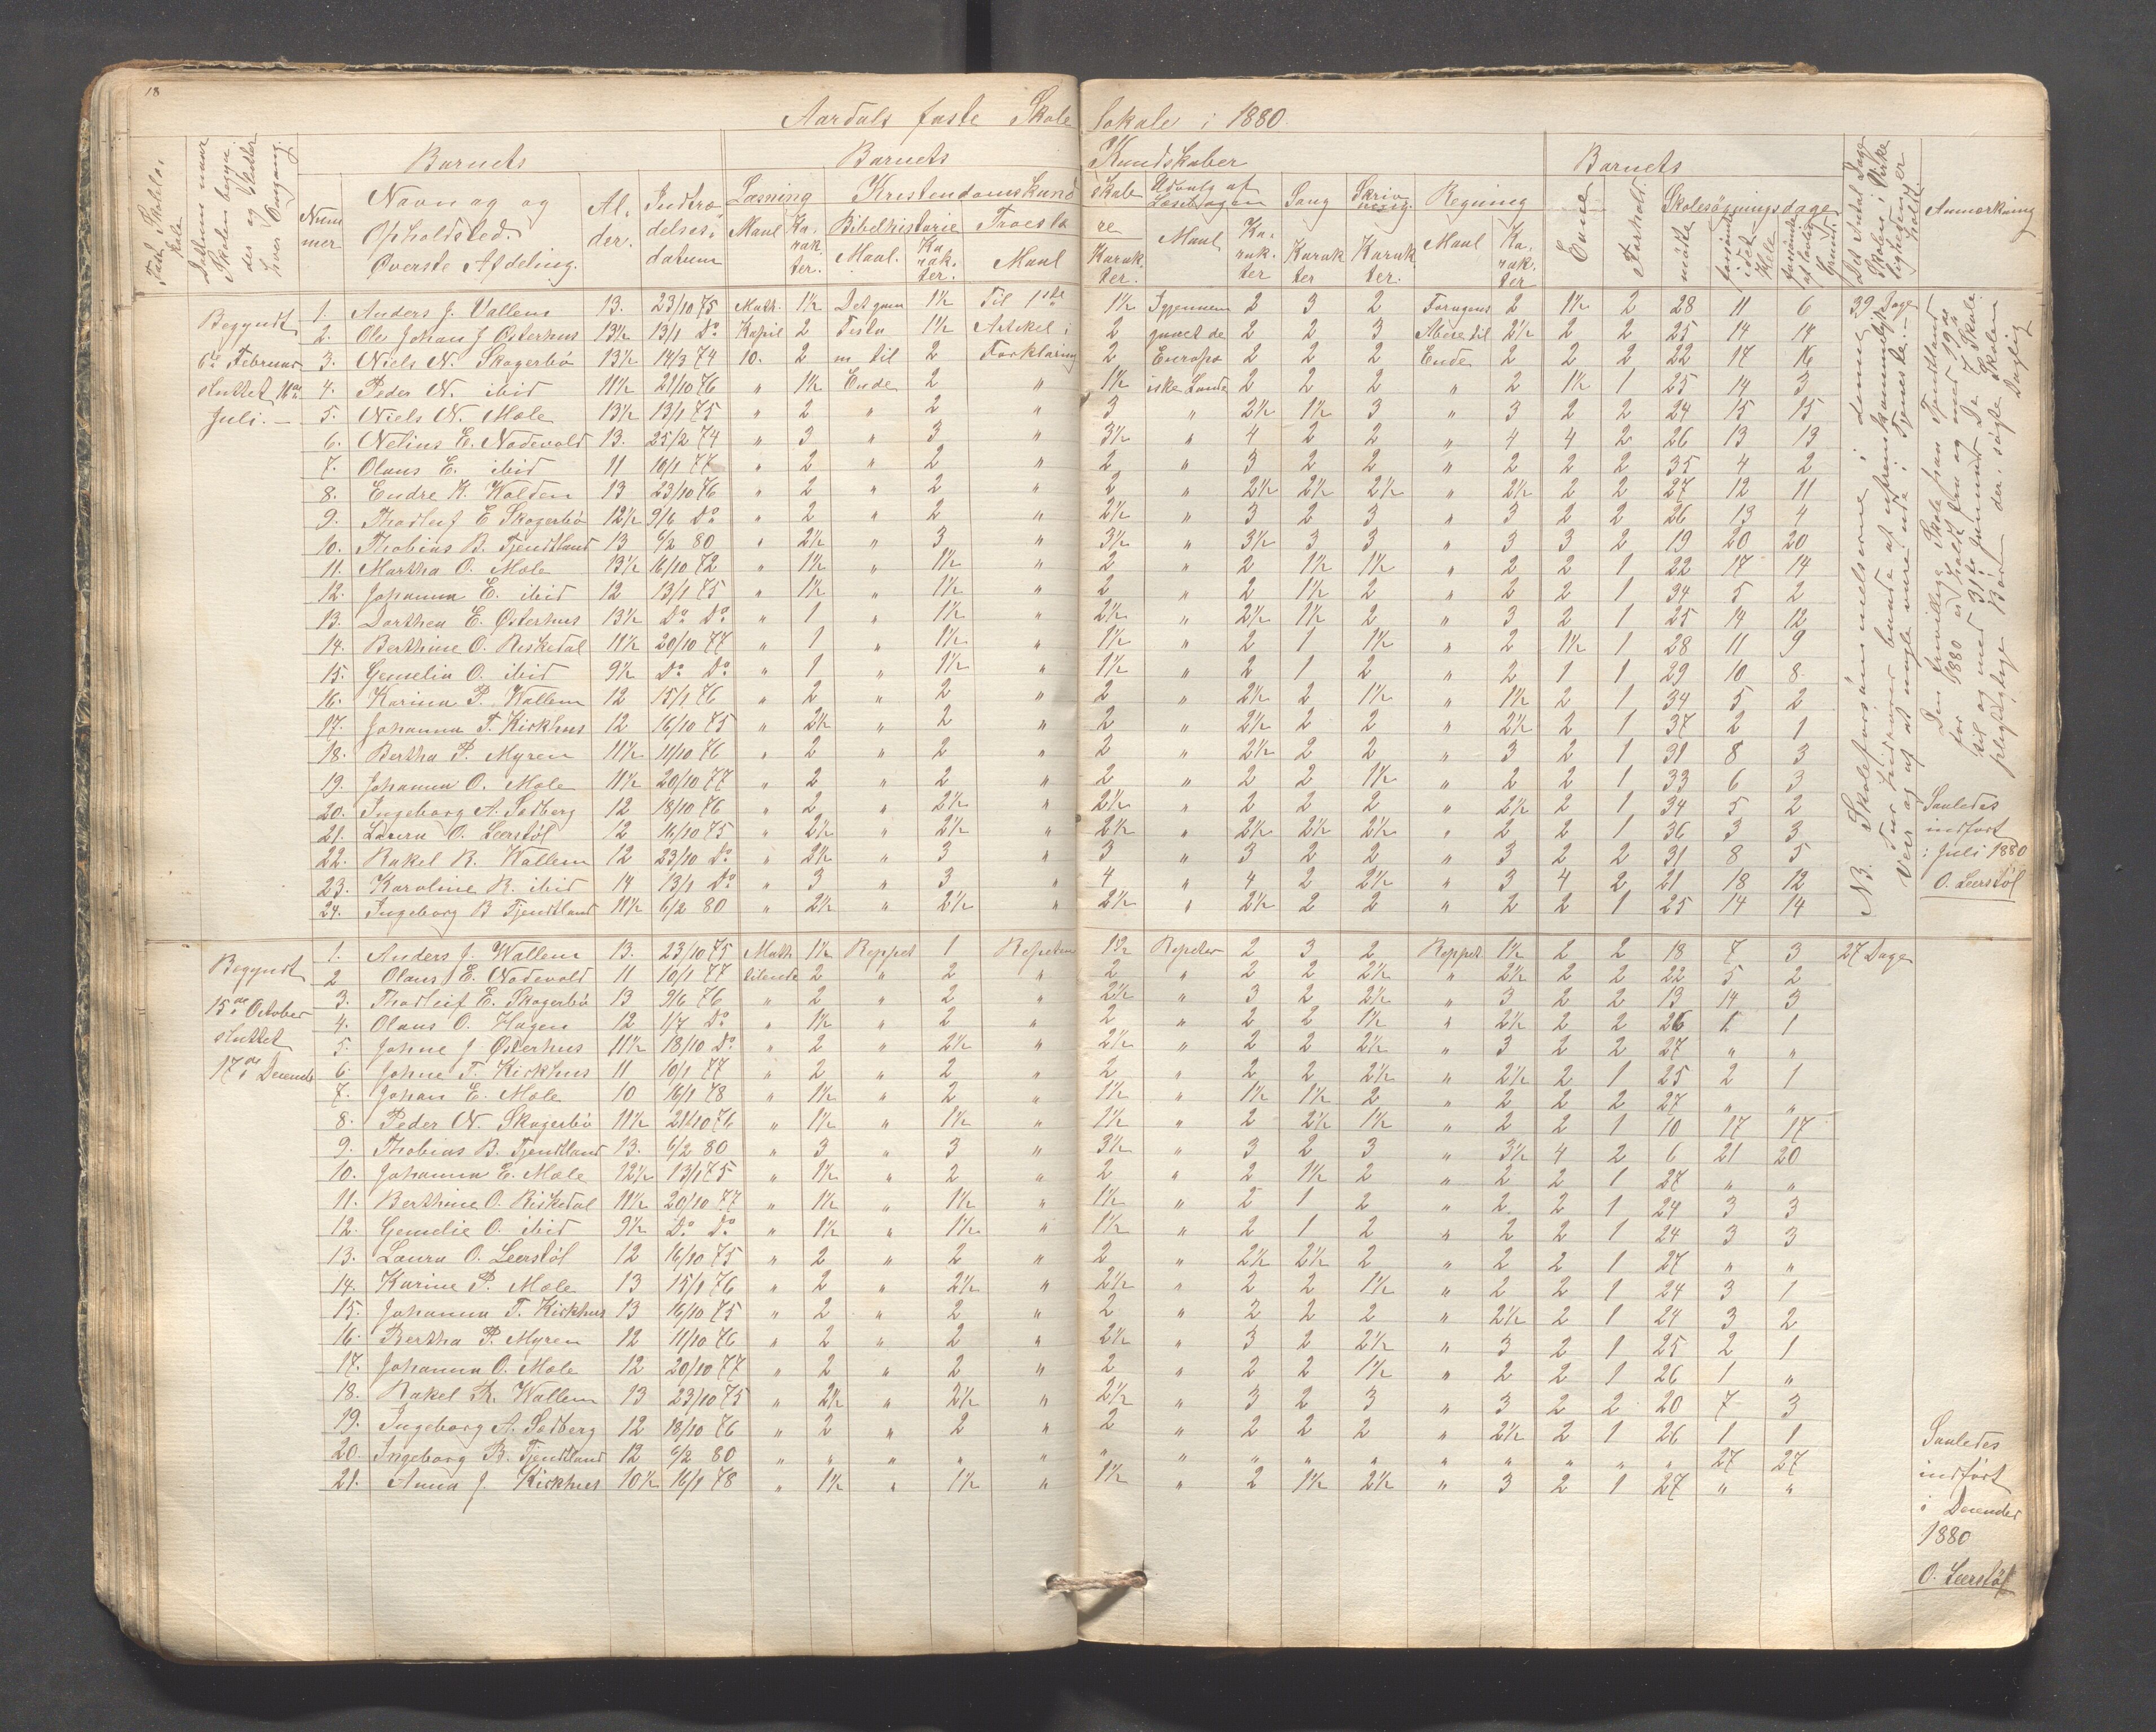 18
Aardals faste Skole lokale i 1880
Barnets Barnets Kundskaber Barnets
Num mer Navn og og Opholdsted. Øverste Afdeling. Al. der. Indtræ delses. datum Læsning Kristendomskund skab Udvalg af Læsebogen Sang Skriv ning. Regning Evne Forhold Skolesøgningsdage Anmærkning
Maal Ka. rak ter. Bibelhistorie Maal. Ka. rak. ter. Troesla Maal re Karak. ter. Maal Ka. rak. ter Karak ter Karak ter. Maal Ka. rak. ter mödte
Begyndt
6te Februar
sluttet 16de
Juli. –
1. Anders J. Vallem 13. 23/10 75 Math. 1½ Det gam 1½ Til 1ste 1½ Igjennem 2 3 2 Forogens 2 1½ 2 28 11 6 39 Dage
2. Ole Johan J Østerhus 13½ 13/1 Do Kapil 2 Testa 1½ Artikel i 2 gaaet de 2 2 3 Abese til 2½ 2 2 25 14 14
3. Niels N. Skogerbø 13½ 14/3 74 10. 2 m til 2 Forklaring 2 Europæ 2 2 2 Ende 2 2 2 22 17 16
4. Peder N. ibid 11½ 21/10 76 " 1½ Ende 2 " 1½ iske Lande 2 2 2 " 2 1½ 1 25 14 3
5. Niels N. Mæle 13½ 13/1 75 " 2 " 2 " 3 " 2½ 1½ 3 " 3 2 2 24 15 15
6. Nelius E. Nodevold 13. 25/2 74 " 3 " 3 " 3½ " 4 2 2 " 4 4 2 26 13 13
7. Olaus E. ibid 11 10/1 77 " 2 " 2 " 2 " 3 2 2 " 2 2 2 35 4 2
8. Endre K. Kolden 13 23/10 76 " 2 " 2 " 2 " 2½ 2½ 2½ " 2½ 2 2 27 12 11
9. Thorleif E Skogerbø 12½ 9/6 Do " 2 " 2 " 2½ " 3 2 3 " 3 2 2 26 13 4
10. Thobias B. Tjendtland 13 6/2 80 " 2½ " 3 " 3½ " 3½ 3 3 " 3 3 2 19 20 20
11. Martha O. Mæle 13½ 16/10 72 " 1½ " 1½ " 2 " 2 1½ 1½ " 2 2 1 22 17 14
12. Johanna E. ibid 12 13/1 75 " 1½ " 1½ " 2 " 2 1½ 2 " 2 2 1 34 5 2
13. Dorthea E. Østerhus 13½ Do Do " 1 " 1½ " 2½ " 2½ 1½ 2 " 3 2 1 25 14 12
14. Berthine O. Riskedal 11½ 20/10 77 " 1 " 1½ " 1½ " 2 1 1½ " 2 1½ 1 28 11 9
15. Gemelia O. ibid 9½ Do Do " 1 " 1½ " 1½ " 2 1 2 " 2 1 1 29 10 8
16. Karina P. Wallem 12 15/1 76 " 2 " 2 " 2 " 2½ 2 1½ " 1½ 2 1 34 5 2
17. Johanna T. Kirkhus 12 16/10 75 " 2½ " 2 " 2 " 2½ 2 2 " 2½ 2 1 37 2 1
18. Bertha P. Myren 11½ 11/10 76 " 2 " 2 " 2 " 2½ 2 2 " 3 2 1 31 8 3
19. Johanna O. Mæle 11½ 20/10 77 " 2 " 2 " 2 " 2 2 1½ " 2 2 1 33 6 3
20. Ingeborg A. Sedberg 12 18/10 76 " 2 " 2½ " 2½ " 2 2 2 " 2½ 2 1 34 5 2
21. Laura O. Leerstøl 12 16/10 75 " 2½ " 2½ " 2½ " 2½ 2½ 2½ " 2 2 1 36 3 3
22. Rakel R. Wallem 12 23/10 Do " 2½ " 3 " 3 " 3 2 2 " 3 2 2 31 8 5
23. Karoline R. ibid 14 13/1 Do " 3 " 3 " 4 " 4 2 2½ " 3 4 2 21 18 12
24. Ingeborg B Tjendtland 11½ 6/2 80 " 2½ " 2½ " 2½ " 2½ 2 2 " 2 2 1 25 14 14
NB. Skoleforsømmelserne i denne
Den frivillige Skole paa Tjendtland
for 1880 er holdt fra og med 19de
til og med 31te Januar
Saaledes
indført
i Juli 1880
O. Leerstøl
Begyndt
15de October
sluttet
17de Decemb
1. Anders J. Wallem 13. 23/10 75 Math 1½ Reppet 1 Repeten 1½ Repeter 2 3 2 Reppet 1½ 2 2 18 7 3 27 Dage
2 Olaus E. Nodevold 11 10/1 77 tilende 2 " 2 " 2 " 2 2 2½ " 2½ 2 2 22 5 2
3. Thorleif E. Skogerbø 13 9/6 76 " 2 " 2 " 2½ " 3 2 2½ " 3 2 2 13 14 3
4. Olaus O. Hagen 12 1/7 Do " 1½ " 2 " 2 " 2 2 1½ " 2½ 2 2 26 1 1
5. Johne J Østerhus 11½ 18/10 Do " 2 " 2½ " 2½ " 2 2 2½ " 3 2 2 27 " "
6. Johne T. Kirkhus 11 10/1 77 " 2 " 2 " 2 " 2 2 2½ " 2½ 2 1 25 2 1
7. Johan E. Mæle 10 16/1 78 " 1½ " 2 " 1½ " 1½ 1½ 2 " 2 2 2 27 " "
8. Peder N. Skogerbø 11½ 21/10 76 " 1½ " 1½ " 1½ " 2 2½ 1½ " 2 2 1 10 17 17
9. Thobias B. Tjendtland 13. 6/2 80 " 3 " 3 " 3½ " 3 2 3 " 3½ 4 2 6 21 20
10. Johanna E. Mæle 12½ 13/1 75 " 1½ " 2 " 2 " 2 1½ 2 " 2 2 1 27 " "
11. Berthine O. Riskedal 11½ 20/10 77 " 1½ " 1½ " 1½ " 2 1 2 " 2 2 1 24 3 3
12. Gemelie O. ibid 9½ Do Do " 1½ " 1½ " 1½ " 2 1 2 " 2 2 1 24 3 3
13. Laura O. Leerstøl 12 16/10 75 " 2 " 2 " 2 " 2½ 2½ 2 " 2 2 1 27 " "
14. Karine P. Mæle 13 15/1 76 " 2 " 2½ " 2½ " 2 2 1½ " 2 2 1 24 3 1
15. Johanna T. Kirkhus 13 16/10 75 " 2 " 2 " 2 " 2 2 2 " 2½ 2 1 24 3 2
16. Bertha P. Myren 12 11/10 76 " 2 " 2 " 2½ " 3 2 2½ " 3 2 1 25 2 1
17. Johanna O. Mæle 12 20/10 77 " 2 " 2 " 2 " 2 2 1½ " 2 2 1 26 1 "
18. Rakel R. Wallem 13 23/10 75 " 2½ " 2½ " 2½ " 3 2 3 " 3 2 2 20 7 3
19. Ingeborg A. Sedberg 12 18/10 76 " 2 " 2 " 2 " 2 2 2 " 2½ 2 1 26 1 1
20. Ingeborg B. Tjendtland 12 6/2 80 " " " " " " " " " " " " " " " 27 27
21. Anna J. Kirkhus 10½ 16/1 78 " 1½ " 1½ " 1½ " 2 1½ 2½ " 3 2 1 27 " "
Saaledes
indført
i December
1880
O. Leerstøl